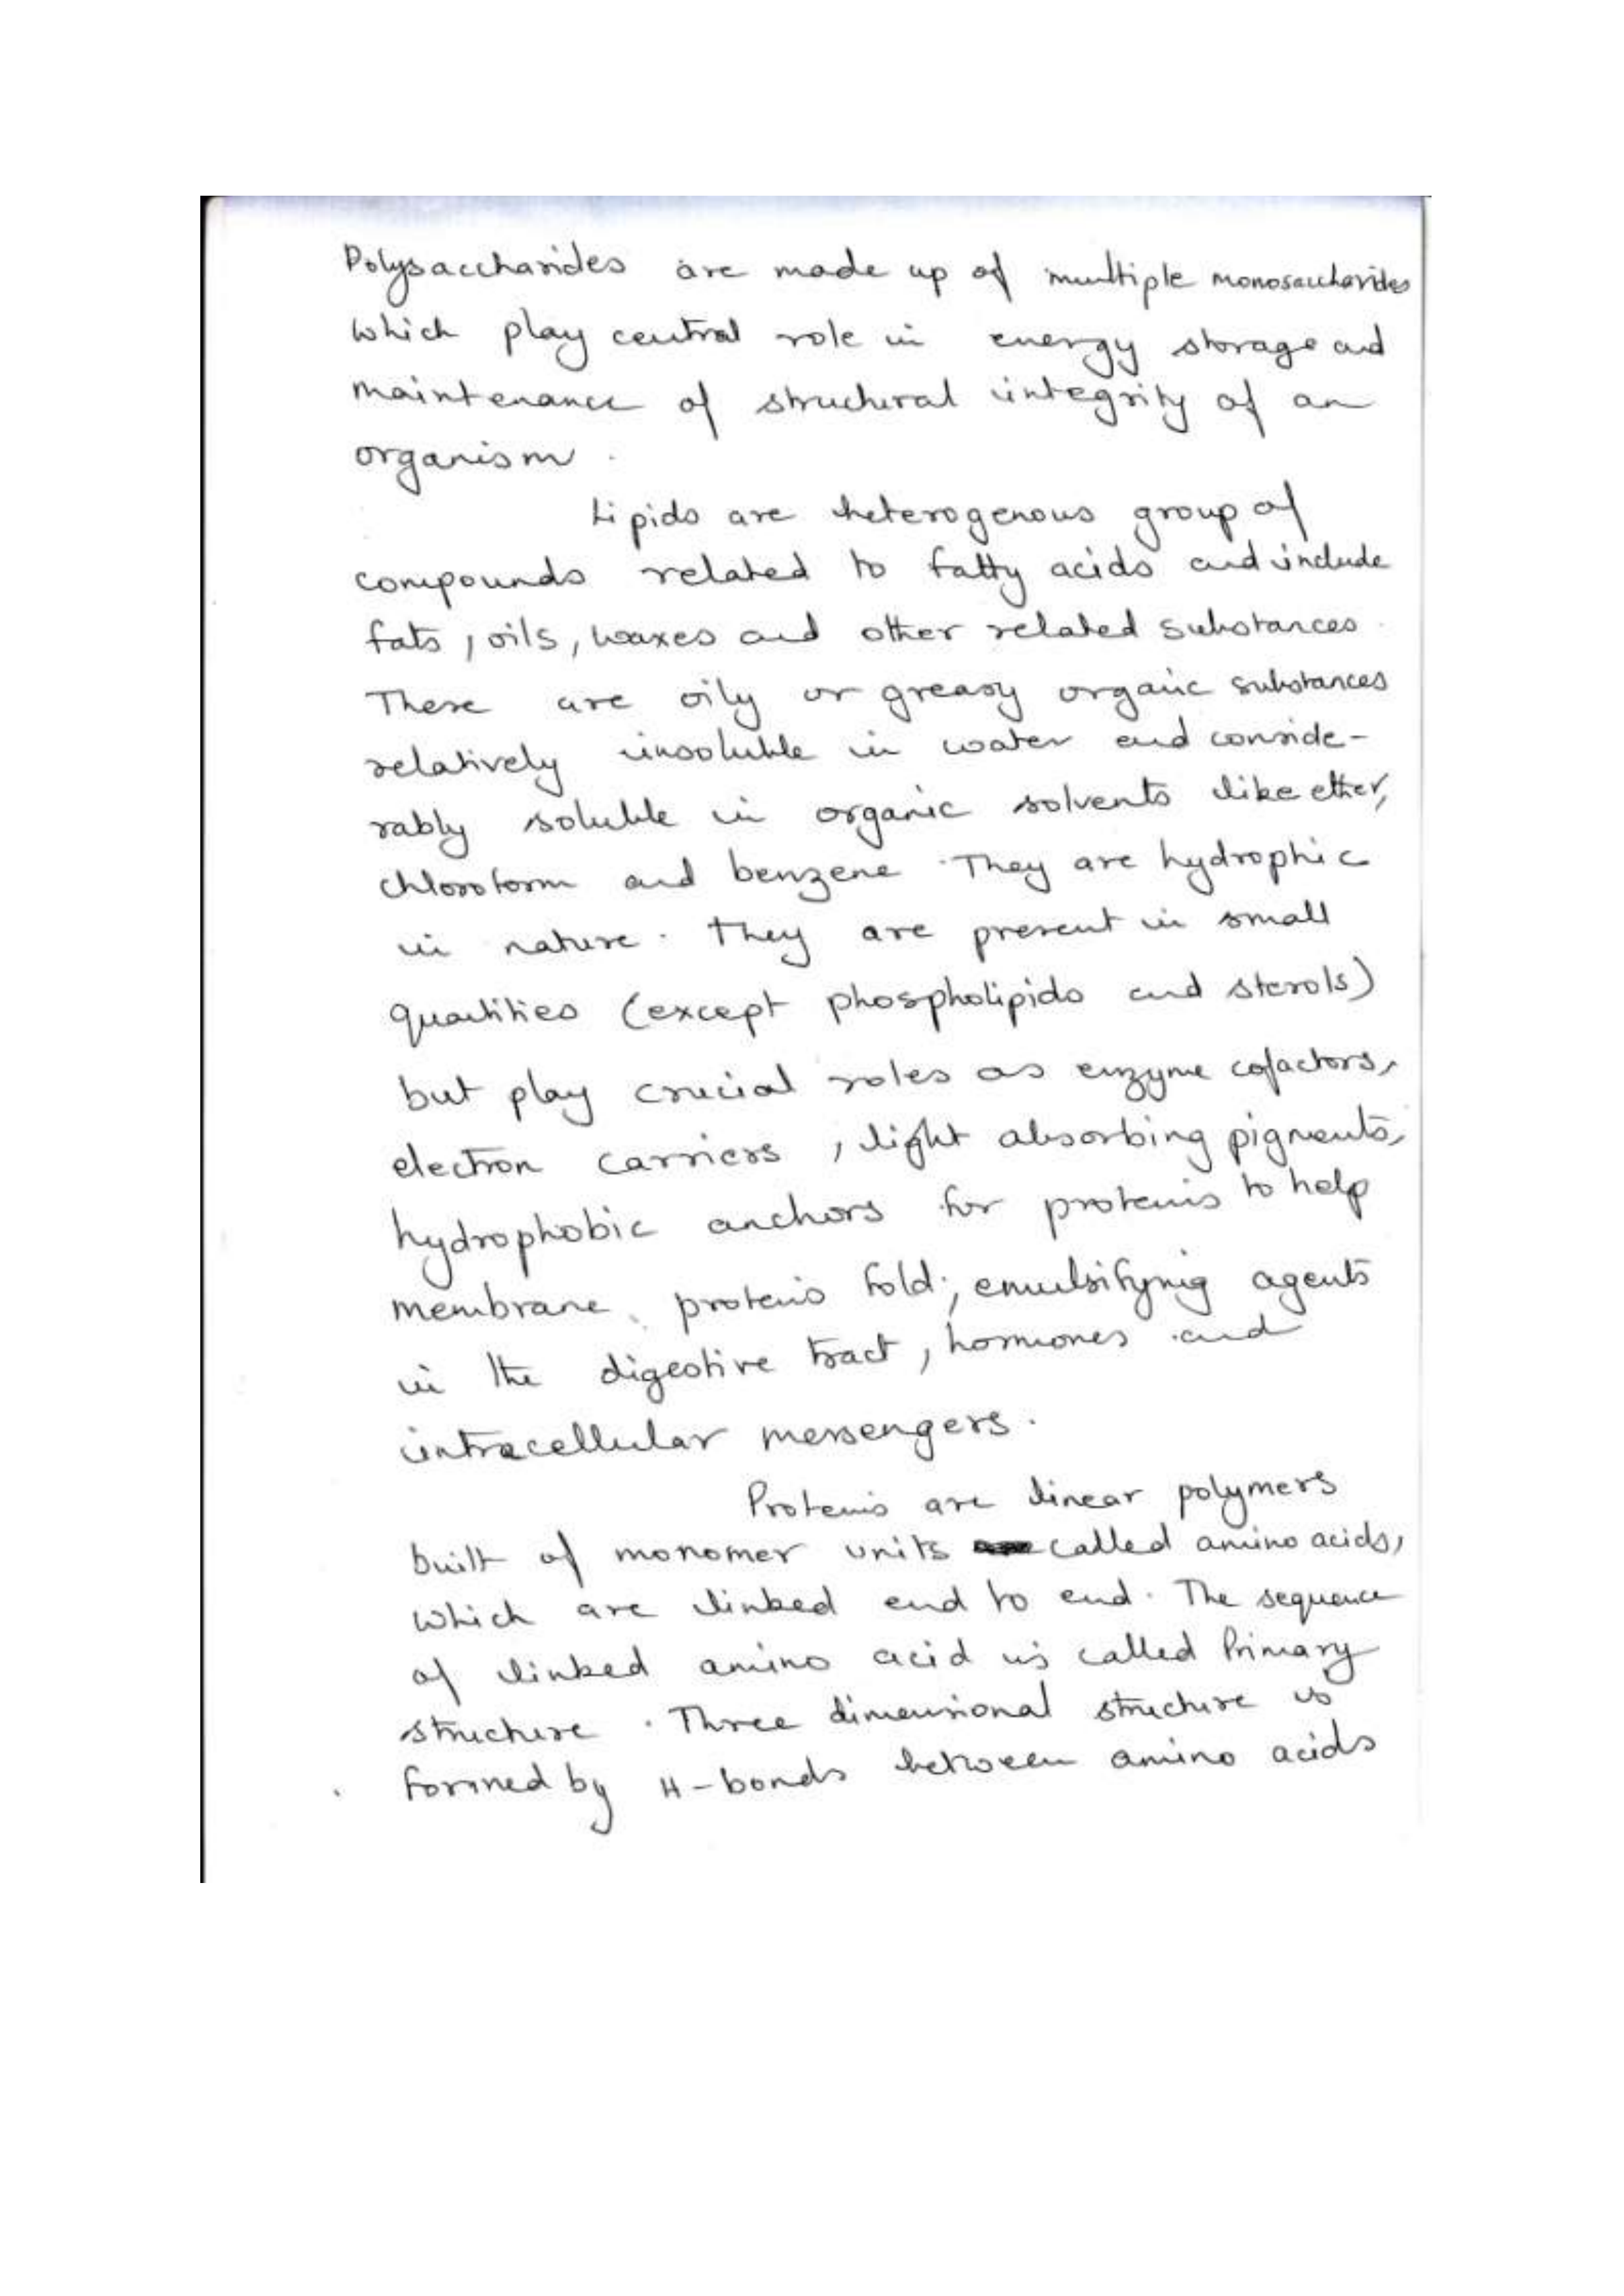 Polysaccharides are made up of multiple monosaccharides
which play central role in energy storage and
maintenance of structural integrity of an
organism.
Lipids are heterogenous group of
compounds related to fatty acids and include
fats, oils, waxes and other related substances.
These are oily or greasy organic substances
relatively insoluble in water and conside-
rably soluble in organic solvents like ether,
chloroform and benzene. They are hydrophic
in nature. They are present in small
quantities (except phospholipids and sterols)
but play crucial roles as enzyme cofactors,
electron carriers, light absorbing pigments,
hydrophobic anchors for proteins to help
membrane proteins fold, emulsifying agents
in the digestive tract, hormones and
intracellular messengers.
Proteins are linear polymers
built of monomer units called amino acids,
which are linked end to end. The sequence
of linked amino acid is called Primary
structure. Three dimensional structure is
formed by H-bonds between amino acids